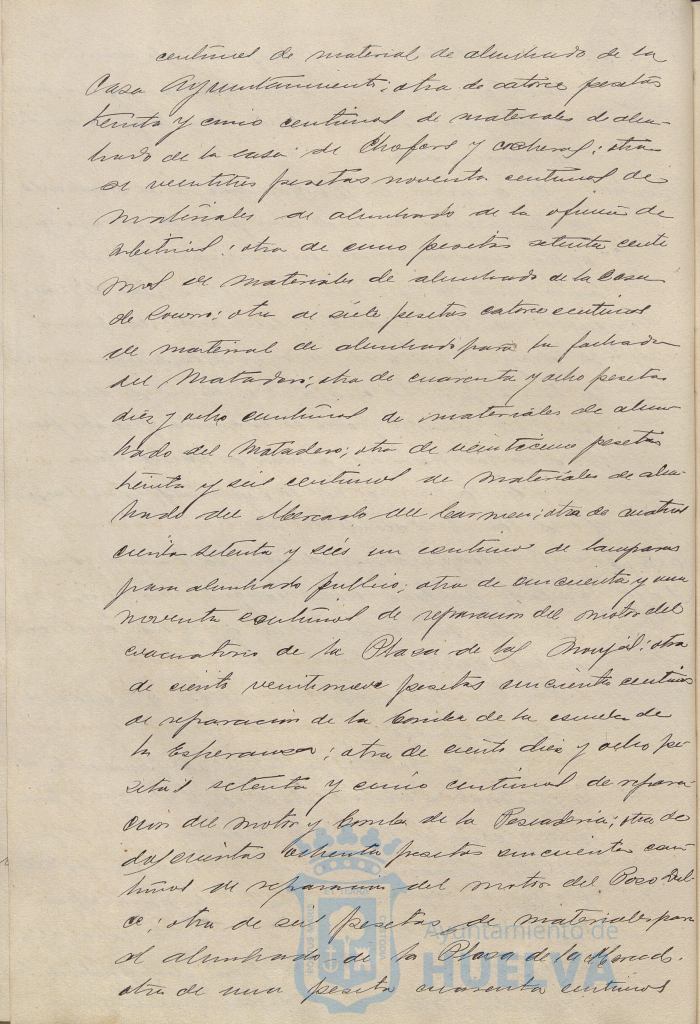 centimos de material de alumbrado de la
Casa Ayuntamiento; otra de catorce pesetas
treinta y cinco centimos de materiales de alum-
brado de la casa de Chofers y cocheras; otra
de veintitres pesetas noventa centimos de
materiales de alumbrado de la oficina de
arbitrios; otra de cinco pesetas setenta centi
mos de materiales de alumbrado de la Casa
de Socorro; otra de siete pesetas catorce centimos
de material de alumbrado para la fachada
del Matadero; otra de cuarenta y ocho pesetas
diez y ocho centimos de materiales de alum-
brado del Matadero; otra de veinticinco pesetas
treinta y seis centimos de materiales de alum-
brado del Mercado del Carmen; otra de cuatro
cientas setenta y seis un centimo de lamparas
para alumbrado publico; otra de cincuenta y una
noventa centimos de reparacion del motor del
evacuatorio de la Plaza de las Monjas; otra
de ciento veintinueve pesetas cincuenta centimos
de reparacion de la bomba de la escuela de
la Esperanza; otra de ciento diez y ocho pe-
setas setenta y cinco centimos de repara-
cion del motor y bomba de la Pescaderia; otra de
doscientas ochenta pesetas cincuenta cen-
timos de reparacion del motor del Pozo Dul-
ce; otra de seis pesetas de materiales para
el alumbrado de la Plaza de la Merced;
otra de una peseta cuarenta centimos
Ayuntamiento de
HUELVA